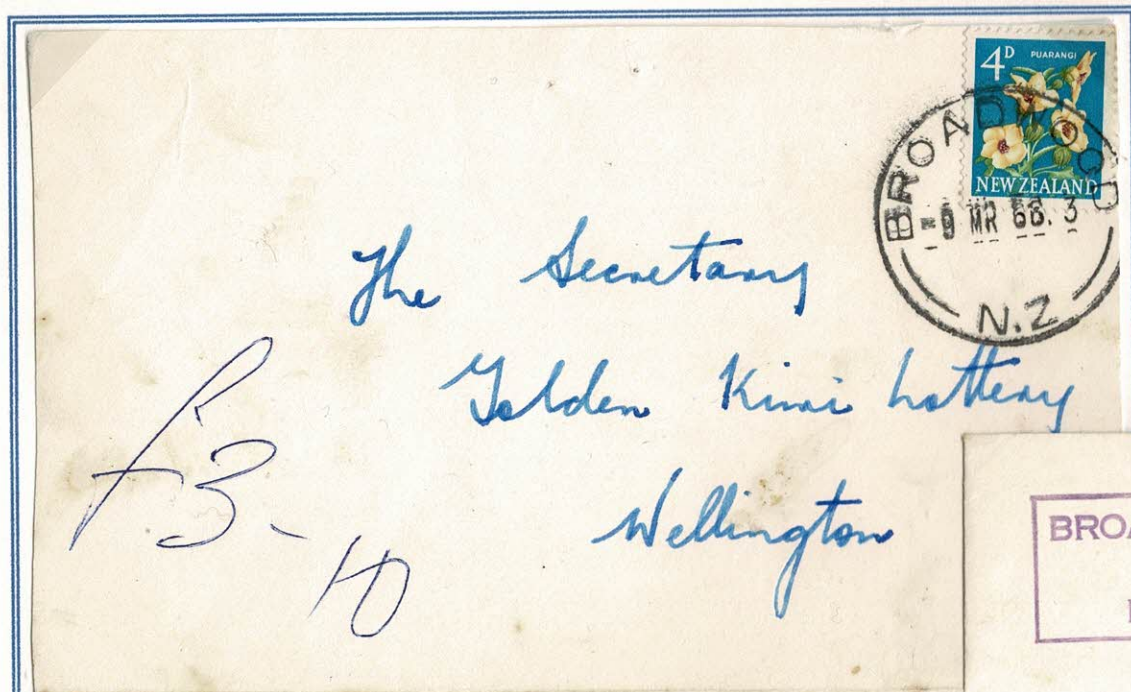 4D PUARANGI
NEW ZEALAND
BROADWOOD
-9 MR 66. 3
N.Z
The Secretary
Golden Kiwi Lottery
Wellington
£3-10
BROA